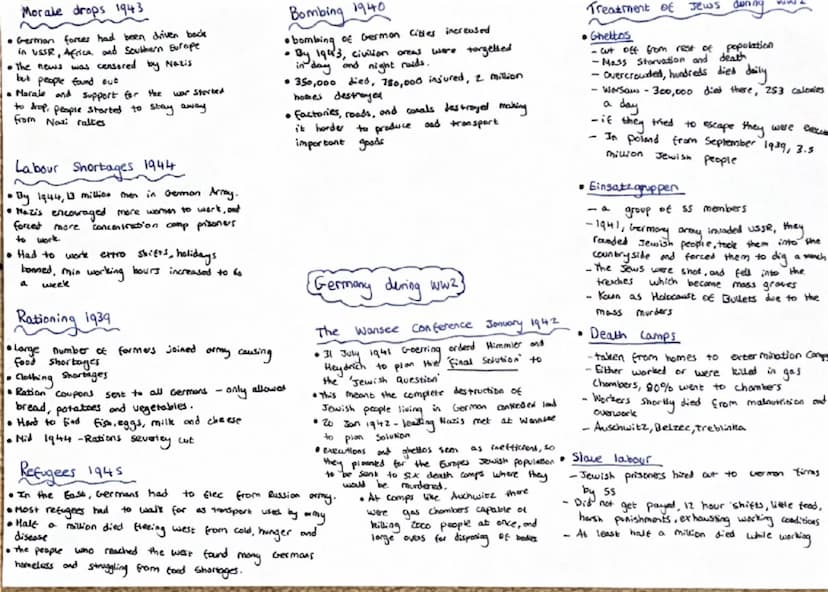 Morale drops 1943
• German forces had been driven back
in USSR, Africa, and Southern Europe
• The news was censored by Nazis
but people found out
• Morale and support for the war started
to drop, people started to stay away
from Nazi rallies
Labour Shortages 1944
• By 1944, 13 million men in German Army.
• Nazis encouraged more women to work, and
forced more concentration camp prisoners
to work
• Had to work extra shifts, holidays
banned, min working hours increased to 60
a week
Rationing 1939
• Large number of farmers joined army causing
food shortages
• Clothing shortages
• Ration coupons sent to all Germans - only allowed
bread, potatoes and vegetables.
• Hard to find fish, eggs, milk and cheese
• Mid 1944 - Rations severley cut
Refugees 1945
• In the East, Germans had to flee from Russian army.
• Most refugees had to walk for as transport used by army
• Half a million died fleeing west from cold, hunger and
disease
• The people who reached the west found many Germans
homeless and struggling from food shortages.
Bombing 1940
• bombing of German cities increased
• By 1943, civilian areas were targetted
in day and night raids.
• 350,000 died, 780,000 injured, 2 million
homes destroyed
• Factories, roads, and canals destroyed making
it harder to produce and transport
important goods
Germany during WW2
The Wansee Conference January 1942
• 31 July 1941 Goerring orderd Himmler and
Heydrich to plan the 'final solution' to
the 'Jewish Question'
• This meant the complete destruction of
Jewish people living in German controlled land
• 20 Jan 1942 - leading Nazis met at Wansee
to plan solution
• executions and ghettos seen as inefficient, so
they planned for the Europes Jewish population
to be sent to six death camps where they
would be murdered.
• At camps like Auchwitz there
were gas chambers capable of
killing 2000 people at once, and
large ovens for disposing of bodies
Treatment of Jews during WW2
• Ghettos
- cut off from rest of population
- Mass starvation and death
- Overcrowded, hundreds died daily
- Warsaw - 300,000 died there, 253 calories
a day
- if they tried to escape they were
- In Poland from September 1939, 3.5
million Jewish people
• Einsatzgruppen
- a group of SS members
- 1941, Germany army invaded USSR, they
rounded Jewish people, took them into the
countryside and forced them to dig a trench
- The Jews were shot, and fell into the
trenches which became mass graves
- Kown as Holocaust of Bullets due to the
mass murders
• Death Camps
- taken from homes to extermination camps
- Either worked or were killed in gas
chambers, 80% went to chambers
- Workers shortly died from malnutrition and
overwork
- Auschwitz, Belzec, Treblinka
• Slave labour
- Jewish prisoners hired out to German firms
by SS
- Did not get payed, 12 hour shifts, little food,
harsh punishments, exhausting working conditions
- At least half a million died while working